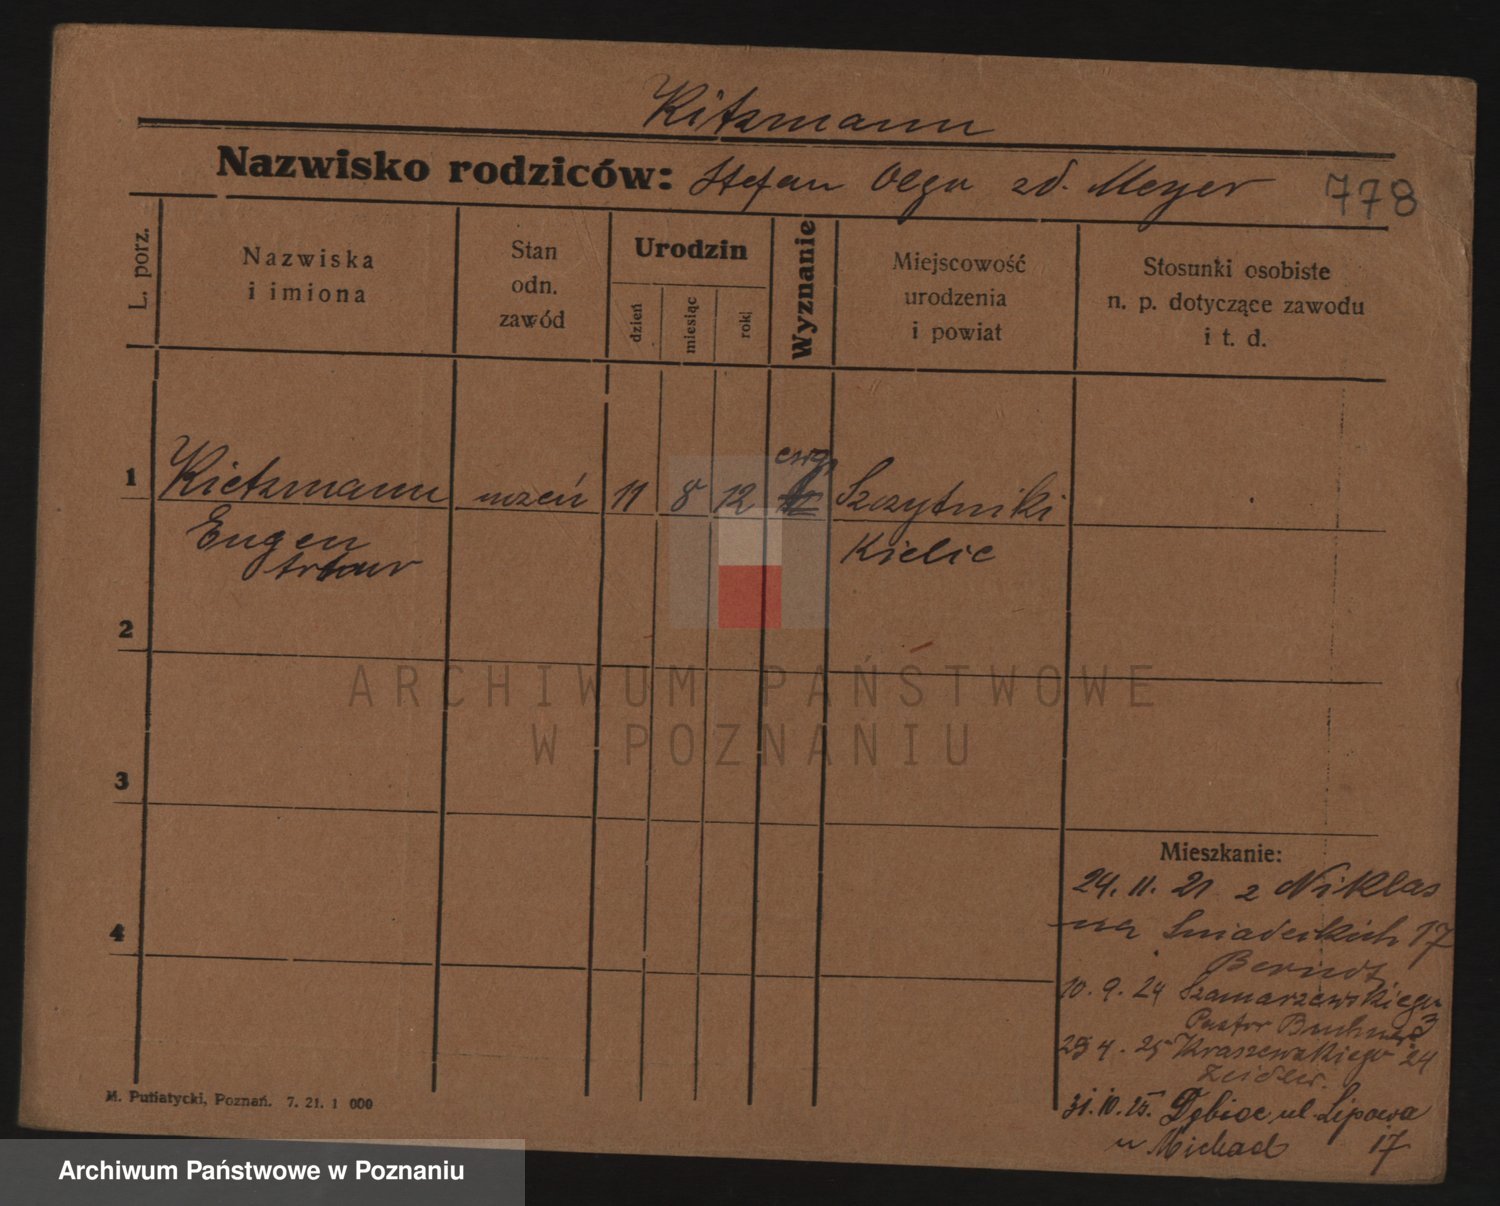 Kitzmann
Nazwisko rodziców: Stefan Olga zd. Meyer 778
L. porz.
Nazwiska
i imiona
Stan
odn.
zawód
Urodzin
dzień
miesiąc
rok
Wyznanie
Miejscowość
urodzenia
i powiat
Stosunki osobiste
n. p. dotyczące zawodu
i t. d.
1 Kietzmann uczeń 11 8 12 ewg. Szczytniki
Eugen Kielic
Artur
2
3
4
Mieszkanie:
24. 11. 21 z Niklas
na Śniadeckich 17
Berndt
10. 9. 24 Szamarzewskiego 3
Pastor
4. 25 Kraszewskiego 24
Zeidler.
31. 10. 25. ul. Lipowa
u 17
M. Putiatycki, Poznań. 7. 21. 1 000
ARCHIWUM PAŃSTWOWE
W POZNANIU
Archiwum Państwowe w Poznaniu